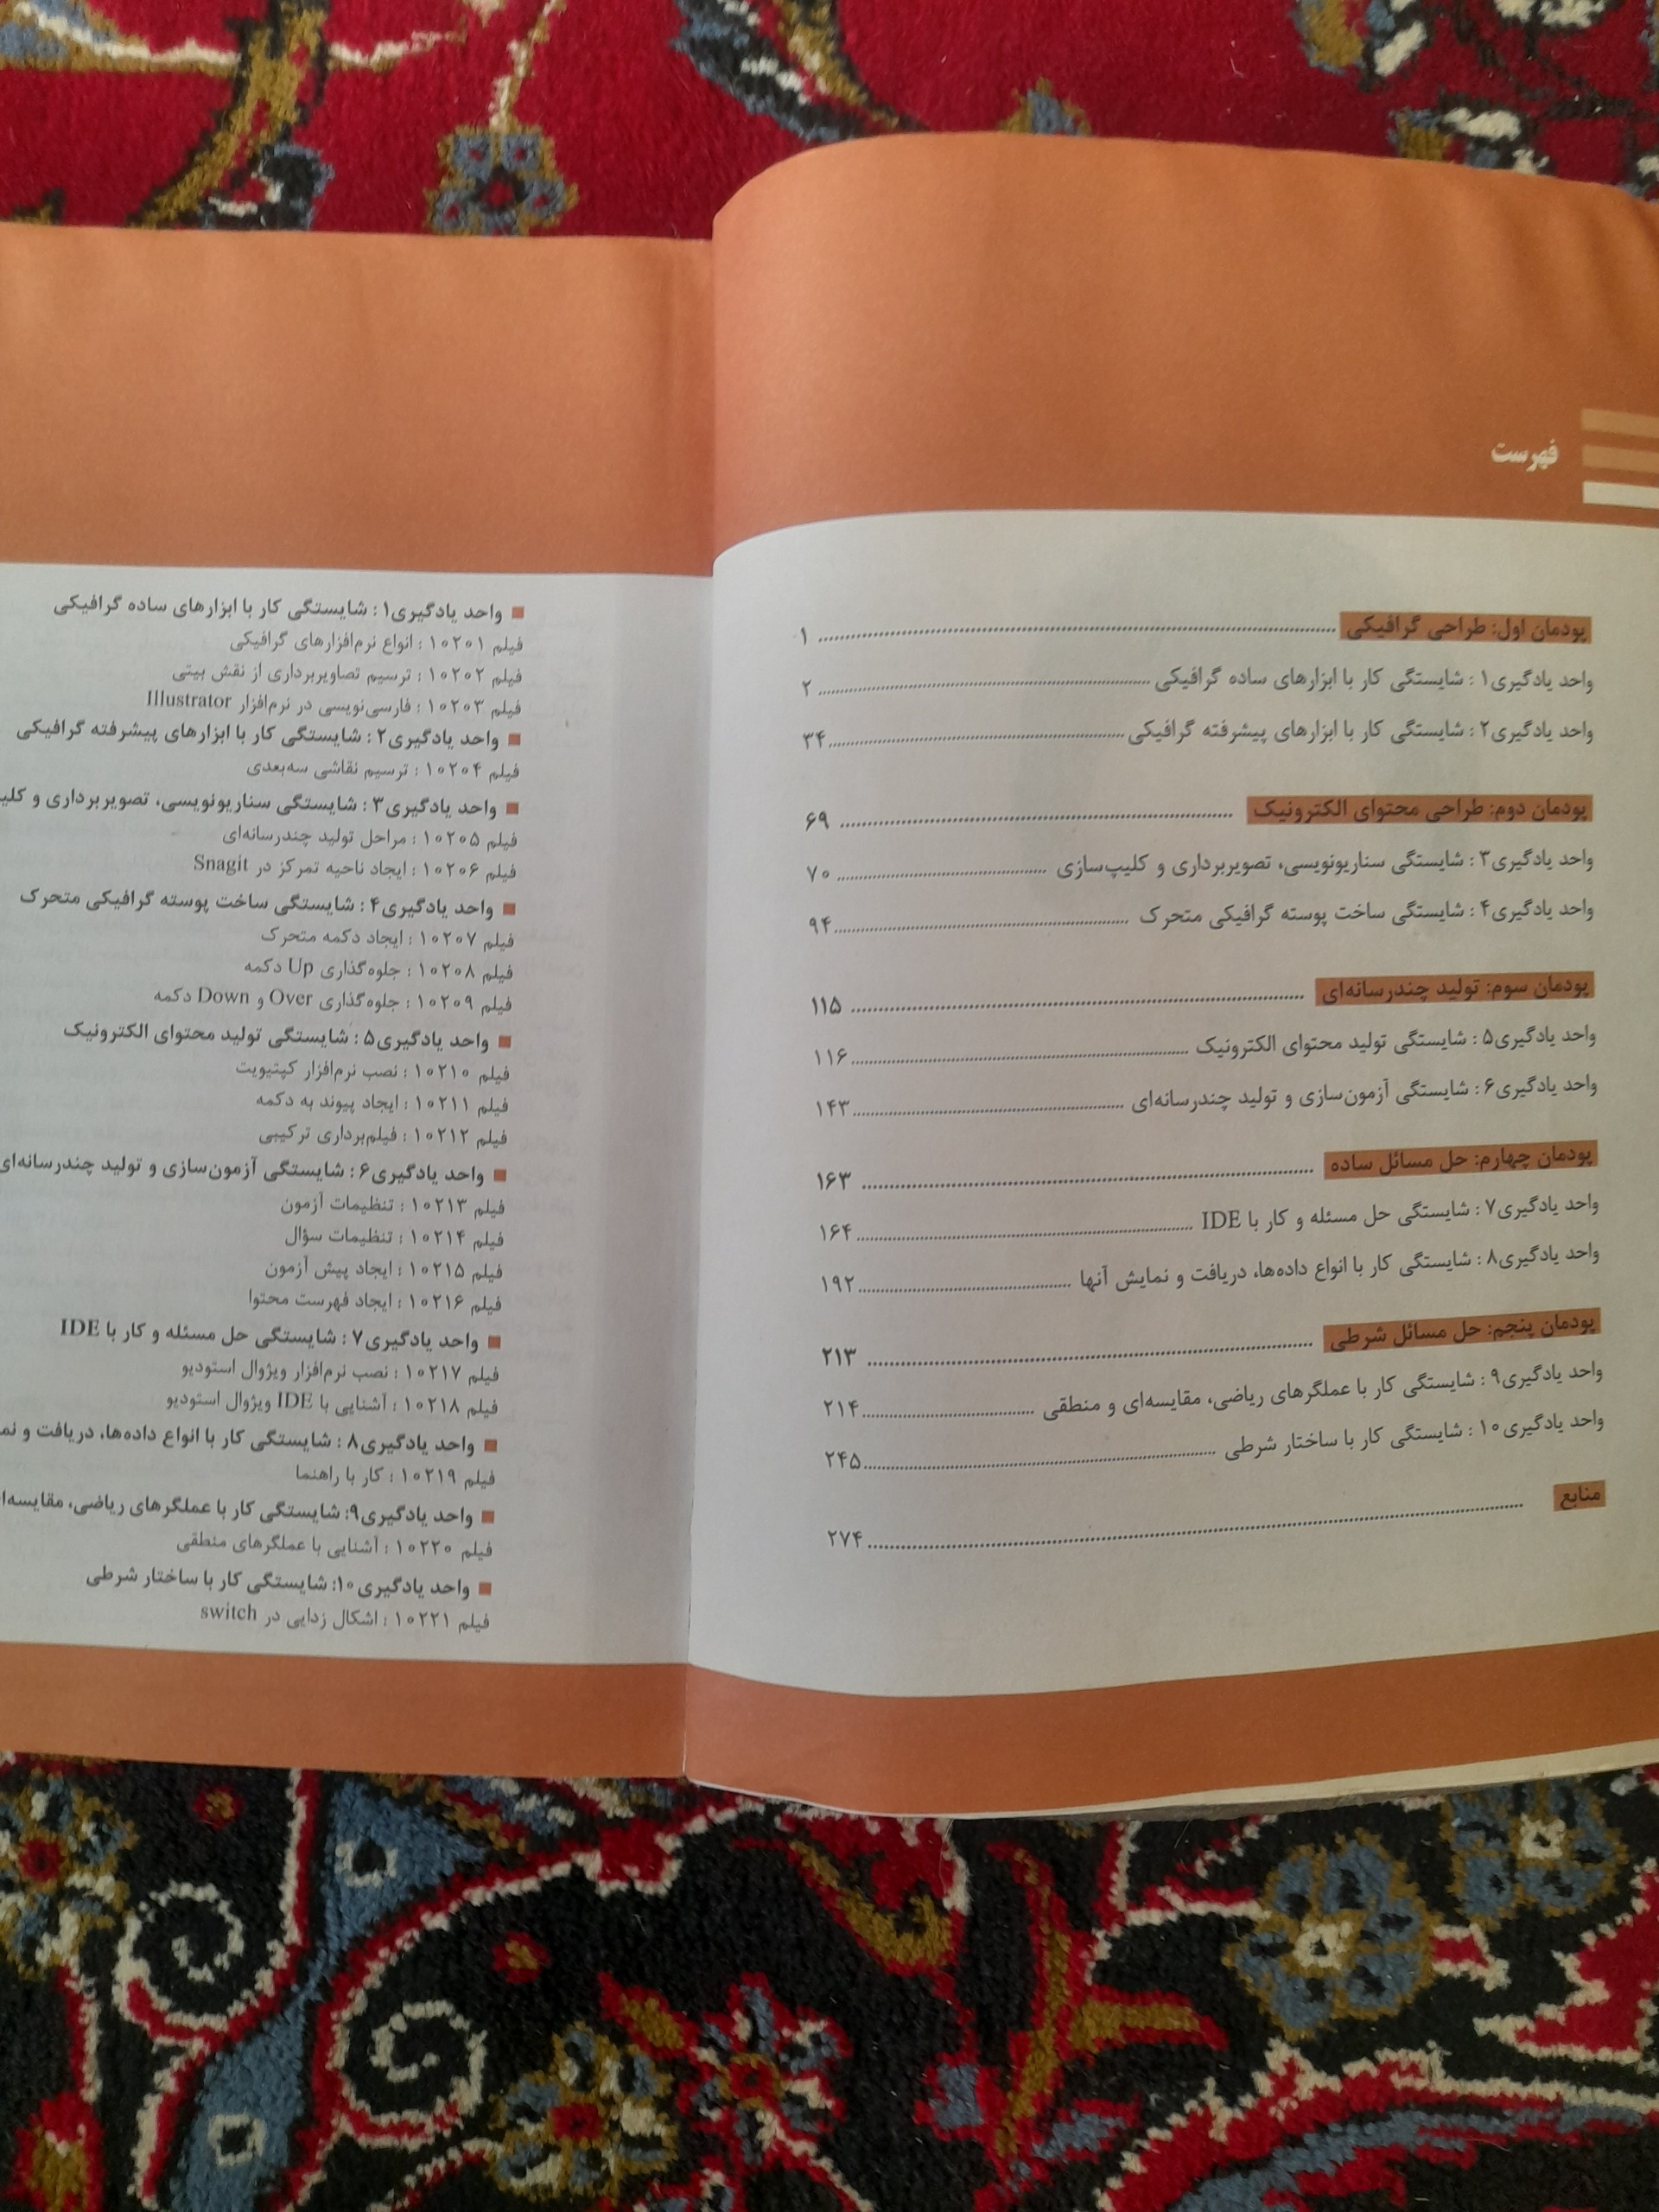 فهرست
پودمان اول: طراحی گرافیکی ........ ۱
واحد یادگیری۱ : شایستگی کار با ابزارهای ساده گرافیکی ........ ۲
واحد یادگیری۲ : شایستگی کار با ابزارهای پیشرفته گرافیکی ........ ۳۴
پودمان دوم: طراحی محتوای الکترونیک ........ ۶۹
واحد یادگیری۳ : شایستگی سناریونویسی، تصویربرداری و کلیپ‌سازی ........ ۷۰
واحد یادگیری۴ : شایستگی ساخت پوسته گرافیکی متحرک ........ ۹۴
پودمان سوم: تولید چندرسانه‌ای ........ ۱۱۵
واحد یادگیری۵ : شایستگی تولید محتوای الکترونیک ........ ۱۱۶
واحد یادگیری۶ : شایستگی آزمون‌سازی و تولید چندرسانه‌ای ........ ۱۴۳
پودمان چهارم: حل مسائل ساده ........ ۱۶۳
واحد یادگیری۷ : شایستگی حل مسئله و کار با IDE ........ ۱۶۴
واحد یادگیری۸ : شایستگی کار با انواع داده‌ها، دریافت و نمایش آنها ........ ۱۹۲
پودمان پنجم: حل مسائل شرطی ........ ۲۱۳
واحد یادگیری۹ : شایستگی کار با عملگرهای ریاضی، مقایسه‌ای و منطقی ........ ۲۱۴
واحد یادگیری۱۰ : شایستگی کار با ساختار شرطی ........ ۲۴۵
منابع ........ ۲۷۴
■ واحد یادگیری۱ : شایستگی کار با ابزارهای ساده گرافیکی
فیلم ۱۰۲۰۱ : انواع نرم‌افزارهای گرافیکی
فیلم ۱۰۲۰۲ : ترسیم تصاویربرداری از نقش بیتی
فیلم ۱۰۲۰۳ : فارسی‌نویسی در نرم‌افزار Illustrator
■ واحد یادگیری۲ : شایستگی کار با ابزارهای پیشرفته گرافیکی
فیلم ۱۰۲۰۴ : ترسیم نقاشی سه‌بعدی
■ واحد یادگیری۳ : شایستگی سناریونویسی، تصویربرداری و
فیلم ۱۰۲۰۵ : مراحل تولید چندرسانه‌ای
فیلم ۱۰۲۰۶ : ایجاد ناحیه تمرکز در Snagit
■ واحد یادگیری۴ : شایستگی ساخت پوسته گرافیکی متحرک
فیلم ۱۰۲۰۷ : ایجاد دکمه متحرک
فیلم ۱۰۲۰۸ : جلوه‌گذاری Up دکمه
فیلم ۱۰۲۰۹ : جلوه‌گذاری Over و Down دکمه
■ واحد یادگیری۵ : شایستگی تولید محتوای الکترونیک
فیلم ۱۰۲۱۰ : نصب نرم‌افزار کپتیویت
فیلم ۱۰۲۱۱ : ایجاد پیوند به دکمه
فیلم ۱۰۲۱۲ : فیلم‌برداری ترکیبی
■ واحد یادگیری۶ : شایستگی آزمون‌سازی و تولید چندرسانه‌ای
فیلم ۱۰۲۱۳ : تنظیمات آزمون
فیلم ۱۰۲۱۴ : تنظیمات سؤال
فیلم ۱۰۲۱۵ : ایجاد پیش آزمون
فیلم ۱۰۲۱۶ : ایجاد فهرست محتوا
■ واحد یادگیری۷ : شایستگی حل مسئله و کار با IDE
فیلم ۱۰۲۱۷ : نصب نرم‌افزار ویژوال استودیو
فیلم ۱۰۲۱۸ : آشنایی با IDE ویژوال استودیو
■ واحد یادگیری۸ : شایستگی کار با انواع داده‌ها، دریافت و
فیلم ۱۰۲۱۹ : کار با راهنما
■ واحد یادگیری۹: شایستگی کار با عملگرهای ریاضی،
فیلم ۱۰۲۲۰ : آشنایی با عملگرهای منطقی
■ واحد یادگیری۱۰: شایستگی کار با ساختار شرطی
فیلم ۱۰۲۲۱ : اشکال زدایی در switch